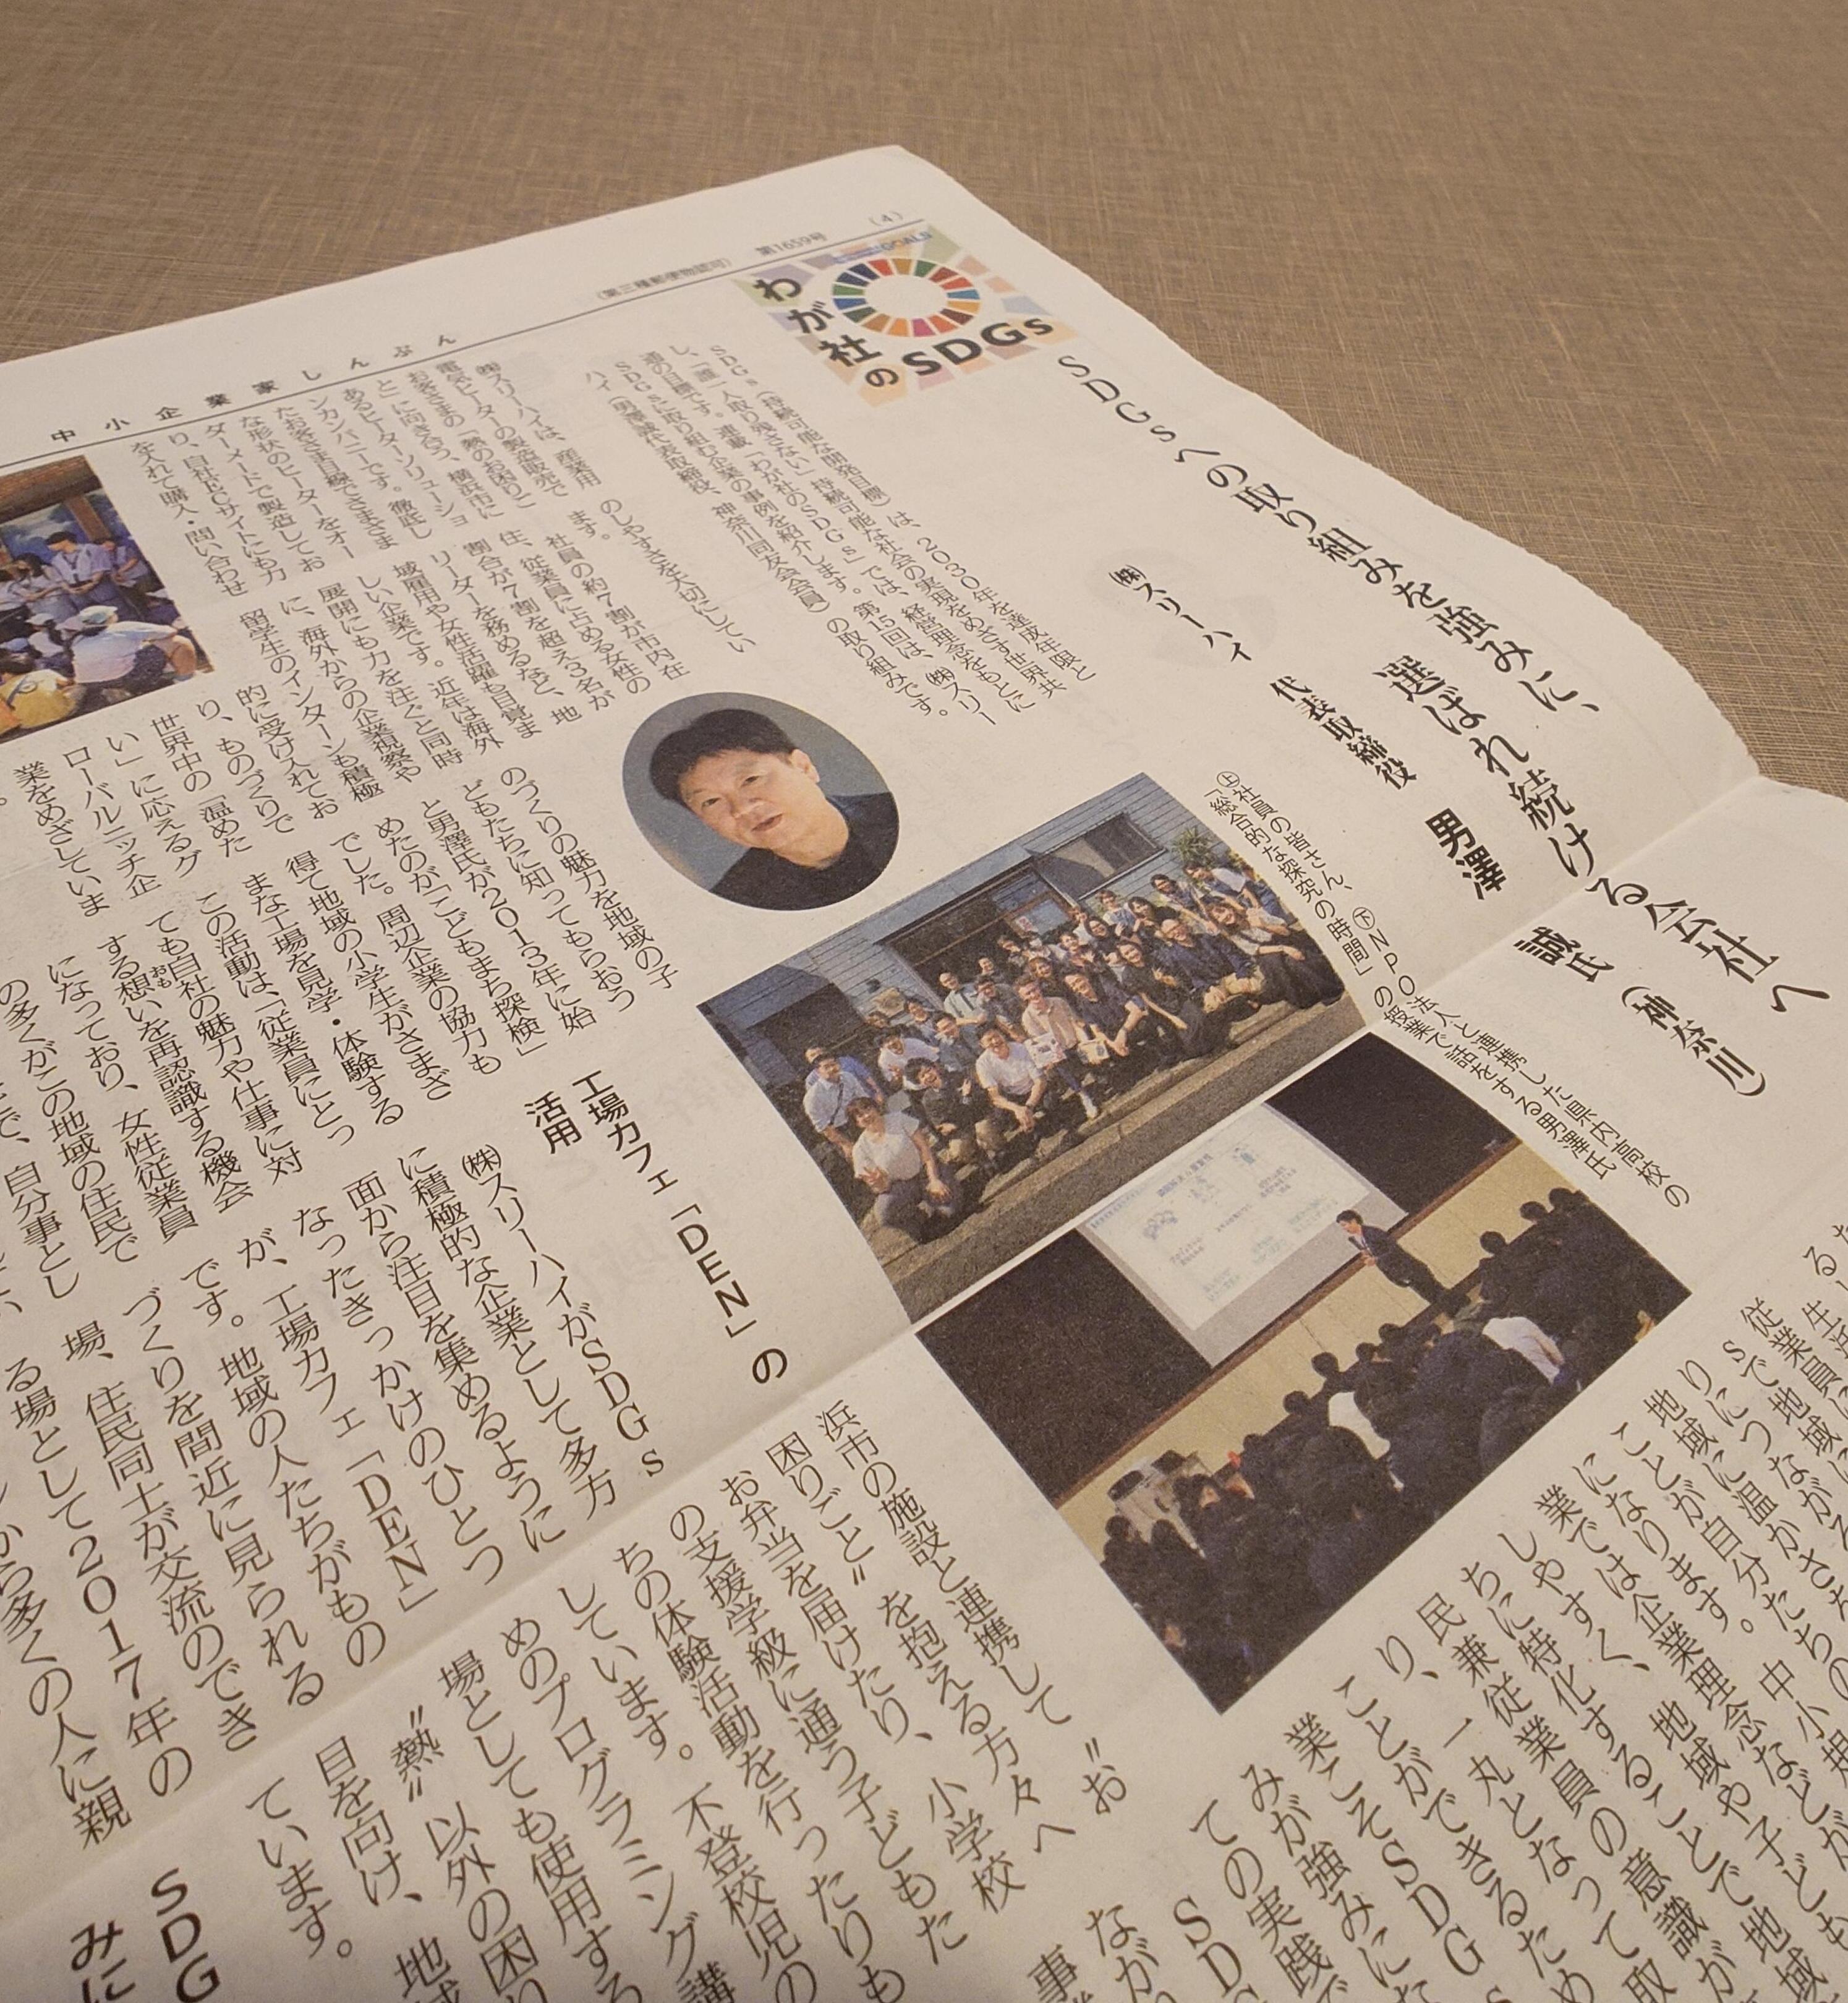 (4)
第1659号
(第三種郵便物認可)
中小企業家しんぶん
GOALS
わが社の
SDGs
SDGsへの取り組みを強みに、
選ばれ続ける会社へ
㈱スリーハイ 代表取締役 男澤 誠氏(神奈川)
SDGs(持続可能な開発目標)は、2030年を達成年限と
し、「誰一人取り残さない」持続可能な社会の実現をめざす世界共
通の目標です。連載「わが社のSDGs」では、経営理念をもとに
SDGsに取り組む企業の事例を紹介します。第15回は、㈱スリー
ハイ(男澤誠代表取締役、神奈川同友会会員)の取り組みです。
㈱スリーハイは、産業用
電気ヒーターの製造販売で
お客さまの「熱のお困りご
と」に向き合う、横浜市に
あるヒーターソリューショ
ンカンパニーです。徹底し
たお客さま目線でさまざま
な形状のヒーターをオー
ダーメードで製造してお
り、自社ECサイトにも力
を入れて購入・問い合わせ
のしやすさを大切にしてい
ます。
社員の約7割が市内在
住、従業員に占める女性の
割合が7割を超え3名が
リーダーを務めるなど、地
域雇用や女性活躍も目覚ま
しい企業です。近年は海外
展開にも力を注ぐと同時
に、海外からの企業視察や
留学生のインターンも積極
的に受け入れてお
り、ものづくりで
世界中の「温めた
い」に応えるグ
ローバルニッチ企
業をめざしていま
のづくりの魅力を地域の子
どもたちに知ってもらおう
と男澤氏が2013年に始
めたのが「こどもまち探検」
でした。周辺企業の協力も
得て地域の小学生がさまざ
まな工場を見学・体験する
この活動は、「従業員にとっ
ても自社の魅力や仕事に対
する想いを再認識する機会
おも
になっており、女性従業員
の多くがこの地域の住民で
で、自分事とし
工場カフェ「DEN」の
活用
㈱スリーハイがSDGs
に積極的な企業として多方
面から注目を集めるように
なったきっかけのひとつ
が、工場カフェ「DEN」
です。地域の人たちがもの
づくりを間近に見られる
場、住民同士が交流のでき
る場として2017年の
から多くの人に親
㊤社員の皆さん、㊦NPO法人と連携した県内高校の
「総合的な探究の時間」の授業で話をする男澤氏
浜市の施設と連携して〝お
困りごと〟を抱える方々へ
お弁当を届けたり、小学校
の支援学級に通う子どもた
ちの体験活動を行ったりも
しています。不登校児の
めのプログラミング講
場としても使用する
〝熱〟以外の困り
目を向け、地域
ています。
SDG
みに
従業員に
Sで地域に
りにつながる
地域に温かさを
ことが自分たちの
になります。中小規
業では企業理念などが
しやすく、地域や子ども
ちに特化することで地域
民兼従業員の意識が
り、一丸となって取
ことができるため
業こそSDGs
みが強みにな
ての実践で
SDG
なが
事